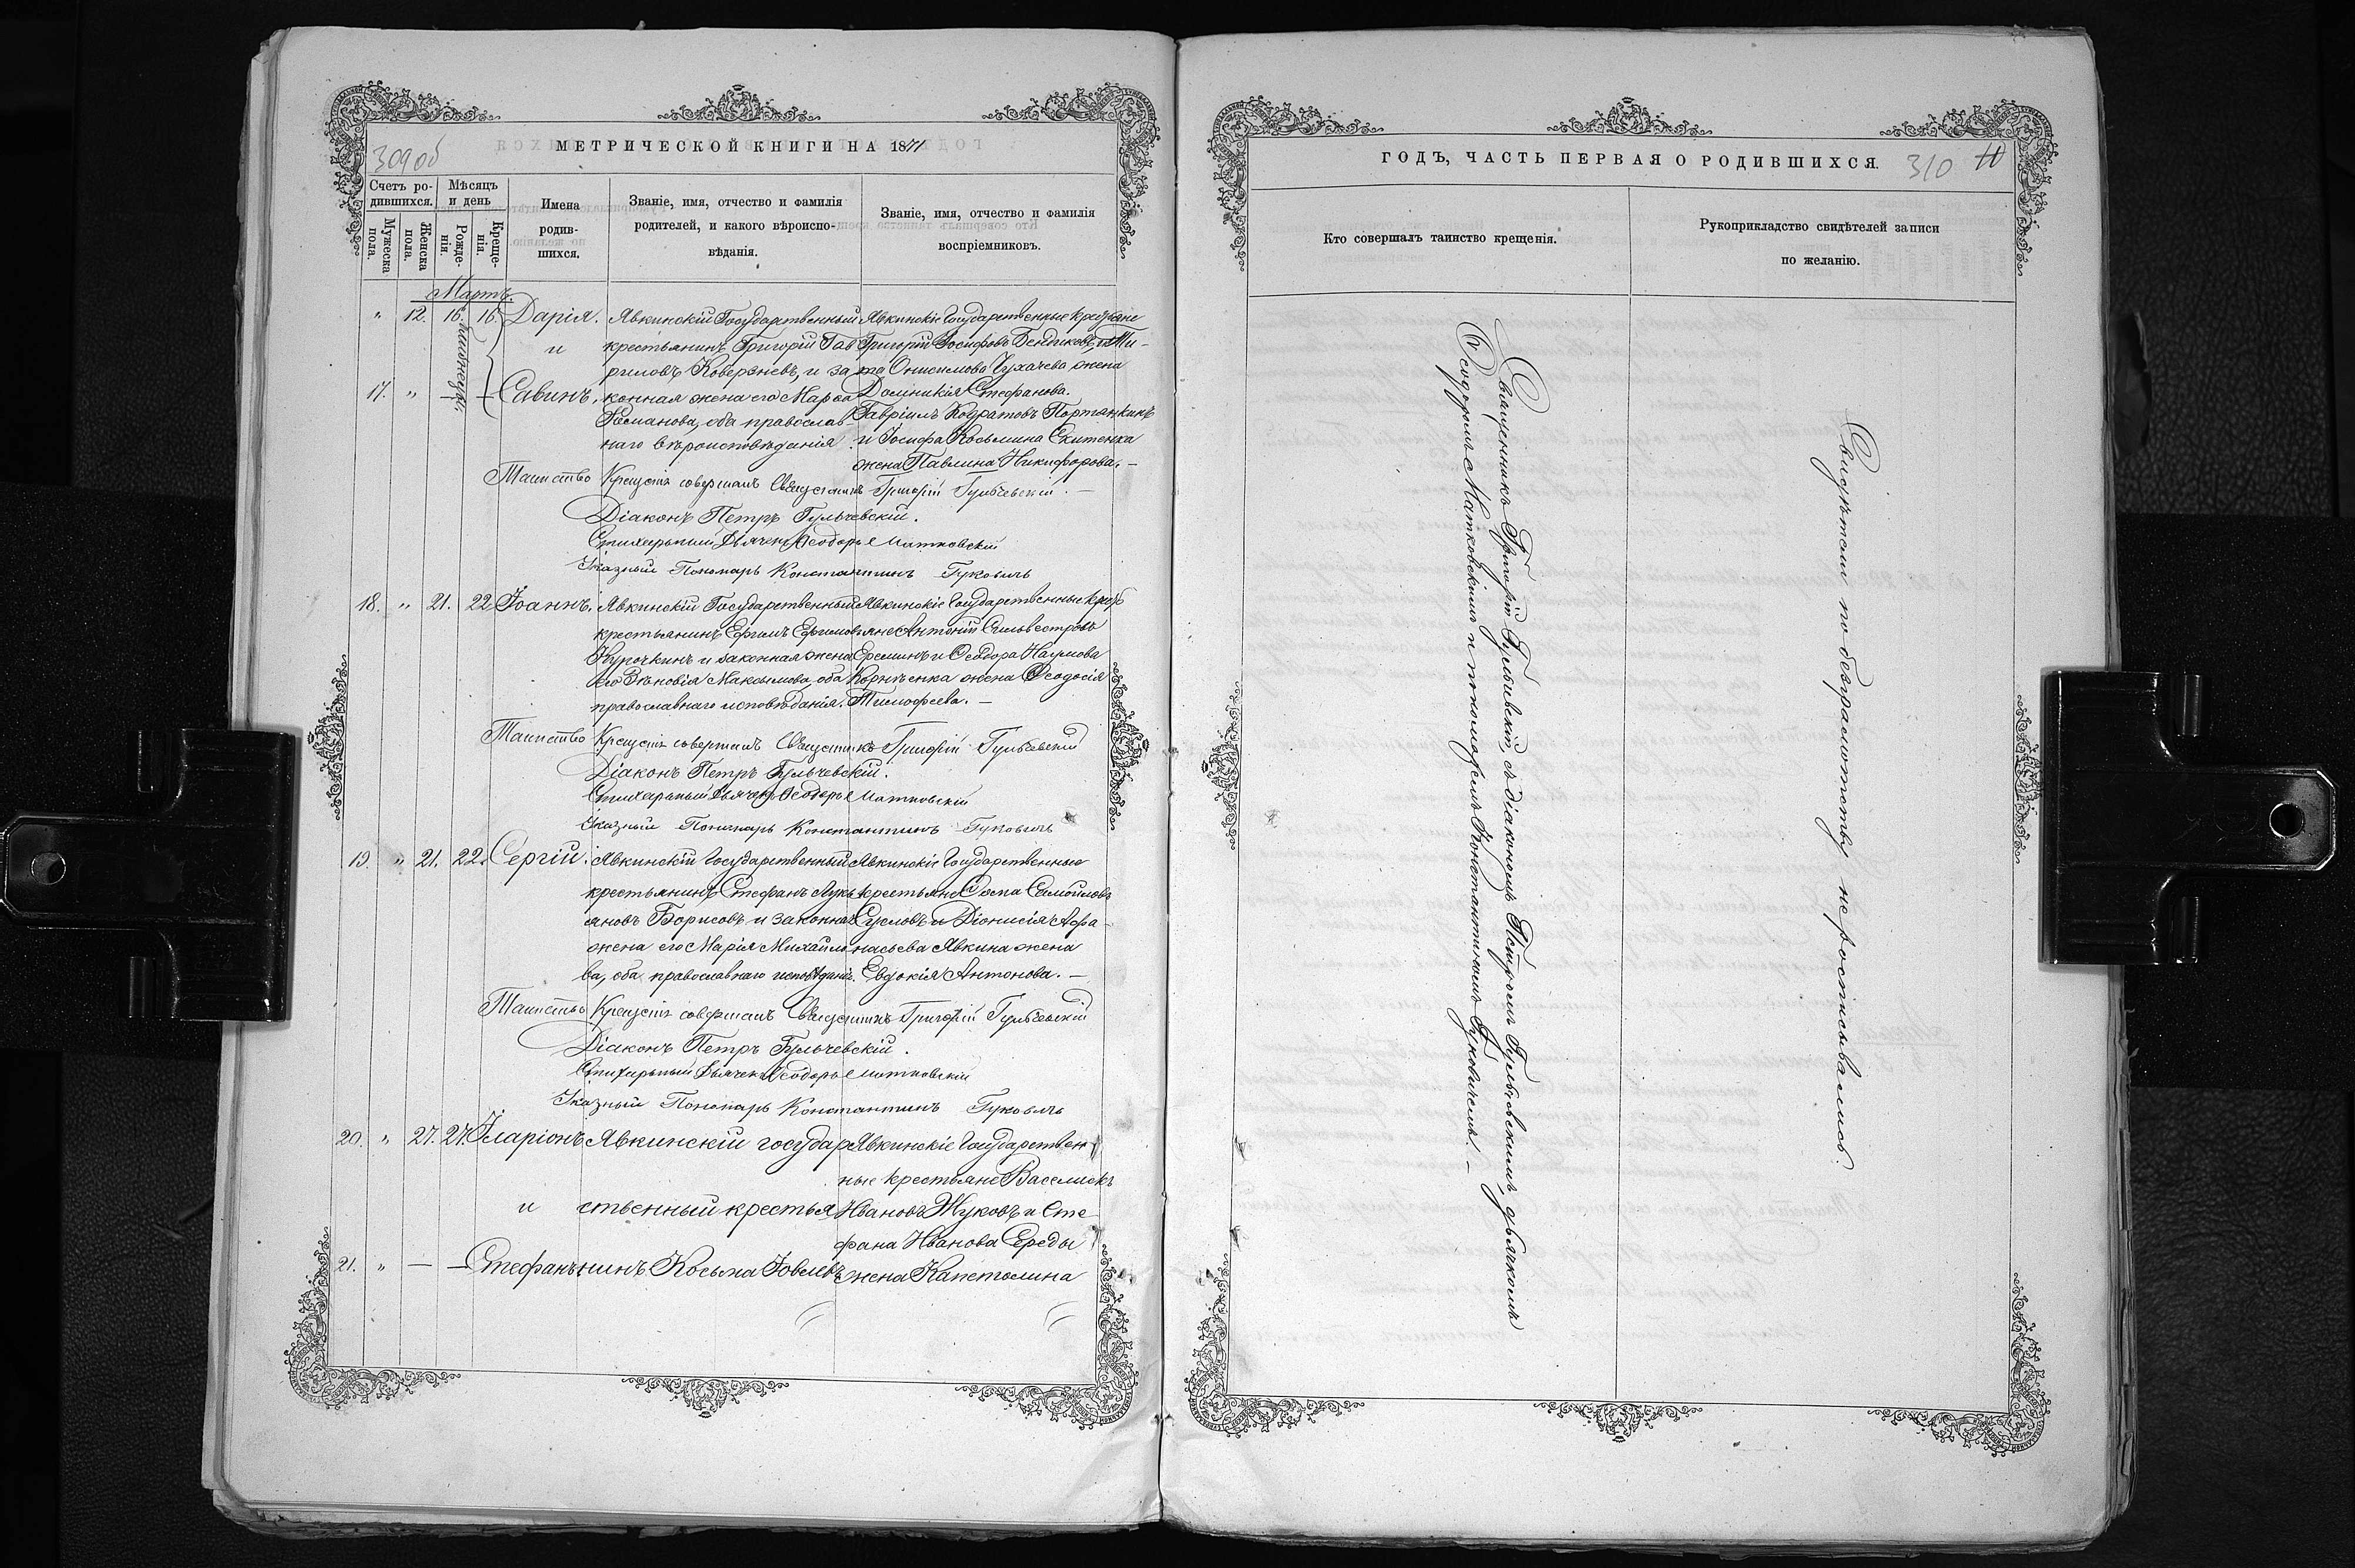 309об
МЕТРИЧЕСКОЙ КНИГИ НА 1871
Счетъ ро-
дившихся.
Мѣсяцъ
и день
Мужеска
пола.
Женска
пола.
Рожде-
нія.
Креще-
нія.
Имена
родив-
шихся.
Званіе, имя, отчество и фамилія
родителей, и какого вѣроиспо-
вѣданія.
Званіе, имя, отчество и фамилія
воспріемниковъ.
Мартъ.
" 12. 16. 16. Дарія.
и
17. " — — Савинъ.
близнецы.
Явкинскій Государственный
крестьянинъ Григорій Гав
риловъ Коверзневъ, и за
конная жена его Марѳа
Романова, оба православ
наго вѣроисповѣданія.
Явкинскіе Государственные крестьяне
Григорій Іосифовъ и Ти-
та Онисимова Чухачева жена
Домникія Стефанова.
Гавріилъ Кодратовъ Портянкинъ
и Іосифа Косьмина Екитенка
жена Павлина Никифорова. —
Таинство Крещенія совершалъ Священникъ Григорій Гульчевскій. —
Діаконъ Петръ Гульчевскій.
Стихарный Дьячекъ Ѳеодоръ Матковскій
Указный Пономарь Константинъ Гуковичъ
18. " 21. 22. Іоаннъ.
Явкинскій Государственный
крестьянинъ Ефимъ Ефимовъ
Курочкинъ и законная жена
его Зѣновія Максимова, оба
православнаго исповѣданія.
Явкинскіе Государственные кресть
яне Антоній Сильвестровъ
Ереминъ и Ѳеодора Наумова
Корнѣенка жена Ѳеодосія
Тимофеева. —
Таинство Крещенія совершалъ Священникъ Григорій Гульчевскій
Діаконъ Петръ Гульчевскій.
Стихарный Дьячекъ Ѳеодоръ Матковскій
Указный Пономарь Константинъ Гуковичъ
19. " 21. 22. Сергій.
Явкинскій Государственный
крестьянинъ Стефанъ Лукь
яновъ Борисовъ и законная
жена его Марія Михайло
ва, оба православнаго исповѣданія.
Явкинскіе Государственные
крестьяне Ѳома Самойловъ
Сусловъ и Діонисія Афа-
насьева Явкина жена
Евдокія Антонова. —
Таинство Крещенія совершалъ Священникъ Григорій Гульчевскій
Діаконъ Петръ Гульчевскій.
Стихарный Дьячекъ Ѳеодоръ Матковскій
Указный Пономарь Константинъ Гуковичъ
20. " 27. 27. Іларіонъ
и
21. " — — Стефанъ
Явкинскій государ
ственный крестья
нинъ Косьма Іовлевъ
Явкинскіе Государствен
ные крестьяне Василискъ
Ивановъ Жуковъ и Сте
фана Иванова Середы
жена Капетолина
ГОДЪ, ЧАСТЬ ПЕРВАЯ О РОДИВШИХСЯ.
310
Кто совершалъ таинство крещенія.
Рукоприкладство свидѣтелей записи
по желанію.
Священникъ Григорій Гульчевскій, съ діакономъ Петромъ Гульчевскимъ, дьячкомъ
Ѳеодоромъ Матковскимъ и пономаремъ Константиномъ Гуковичемъ. —
Свидѣтели по безграмотству не росписывались.